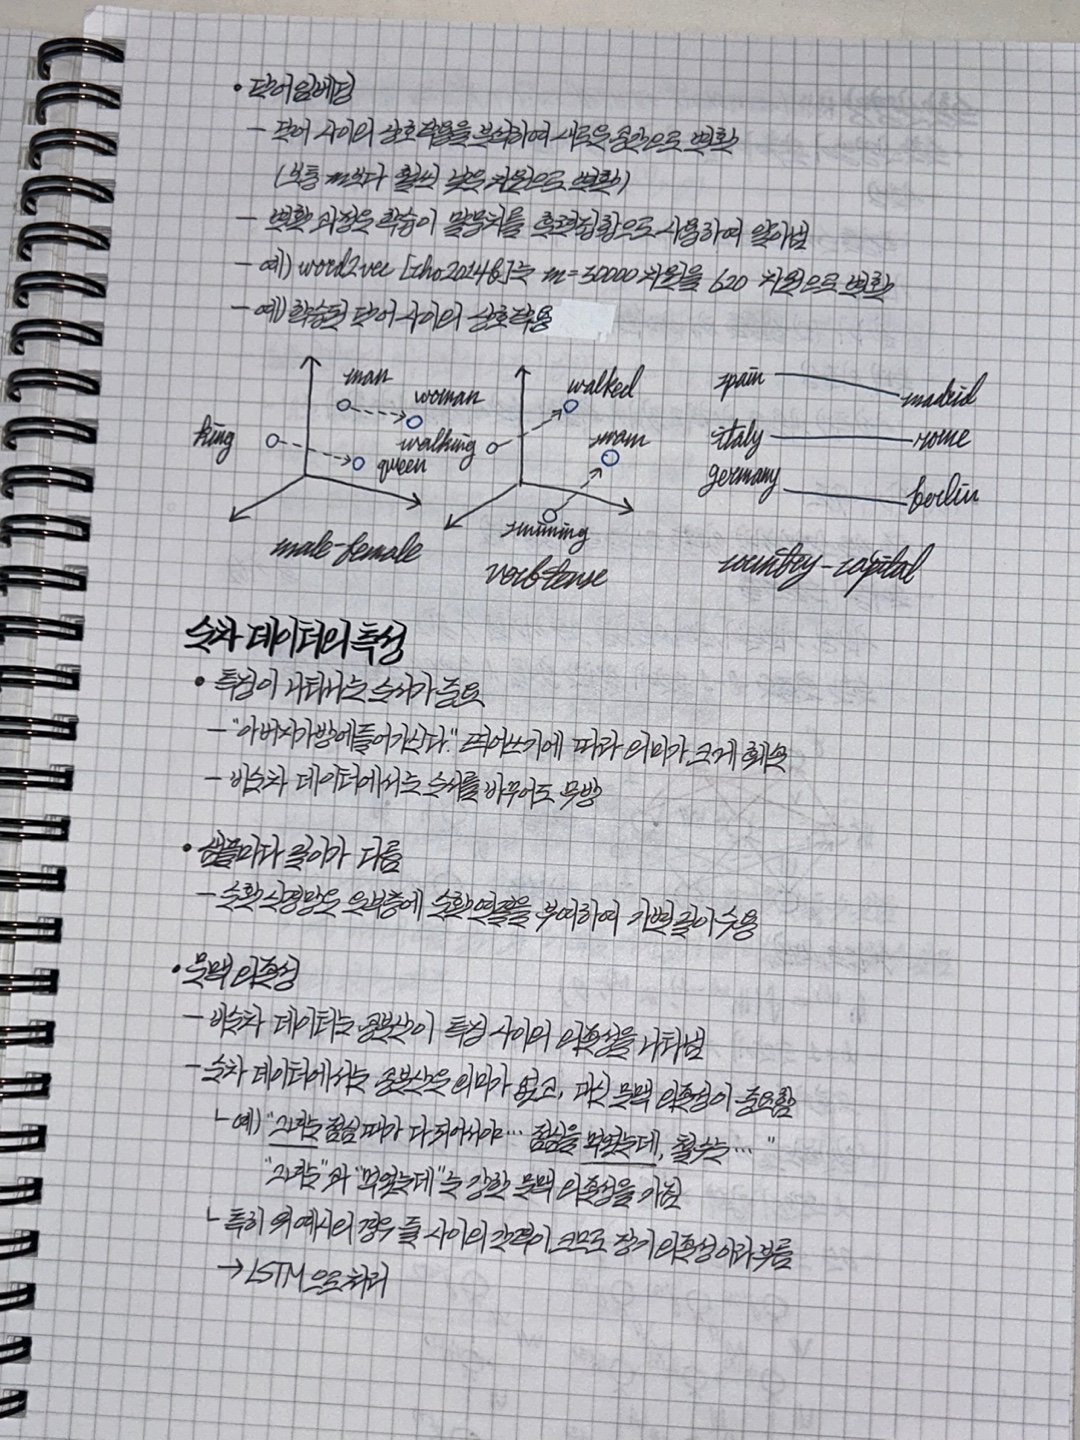 • 단어 임베딩
- 단어 사이의 상호작용을 분석하여 새로운 공간으로 변환
(보통 m보다 훨씬 낮은 차원으로 변환)
- 변환 과정은 학습이 말뭉치를 훈련집합으로 사용하여 알아냄
- 예) word2vec [cho2014b]는 m=30000차원을 620 차원으로 변환
- 예) 학습된 단어 사이의 상호작용
man
woman
king
queen
male-female
walked
walking
swam
swimming
verb-tense
spain madrid
italy rome
germany berlin
country-capital
순차 데이터의 특성
• 특징이 나타나는 순서가 중요
- "아버지가방에들어가신다." 띄어쓰기에 따라 의미가 크게 훼손
- 비순차 데이터에서는 순서를 바꾸어도 무방
• 샘플마다 길이가 다름
- 순환신경망은 은닉층에 순환연결을 부여하여 가변길이 수용
• 문맥 의존성
- 비순차 데이터는 공분산이 특징 사이의 의존성을 나타냄
- 순차 데이터에서는 공분산은 의미가 없고, 대신 문맥 의존성이 중요함
└ 예) "그녀는 점심때가 다 되어서야… 점심을 먹었는데, 철수는…"
"그녀는"과 "먹었는데"는 강한 문맥 의존성을 가짐
└ 특히 위 예시의 경우 둘 사이의 간격이 크므로 장기 의존성이라 부름
→ LSTM으로 처리